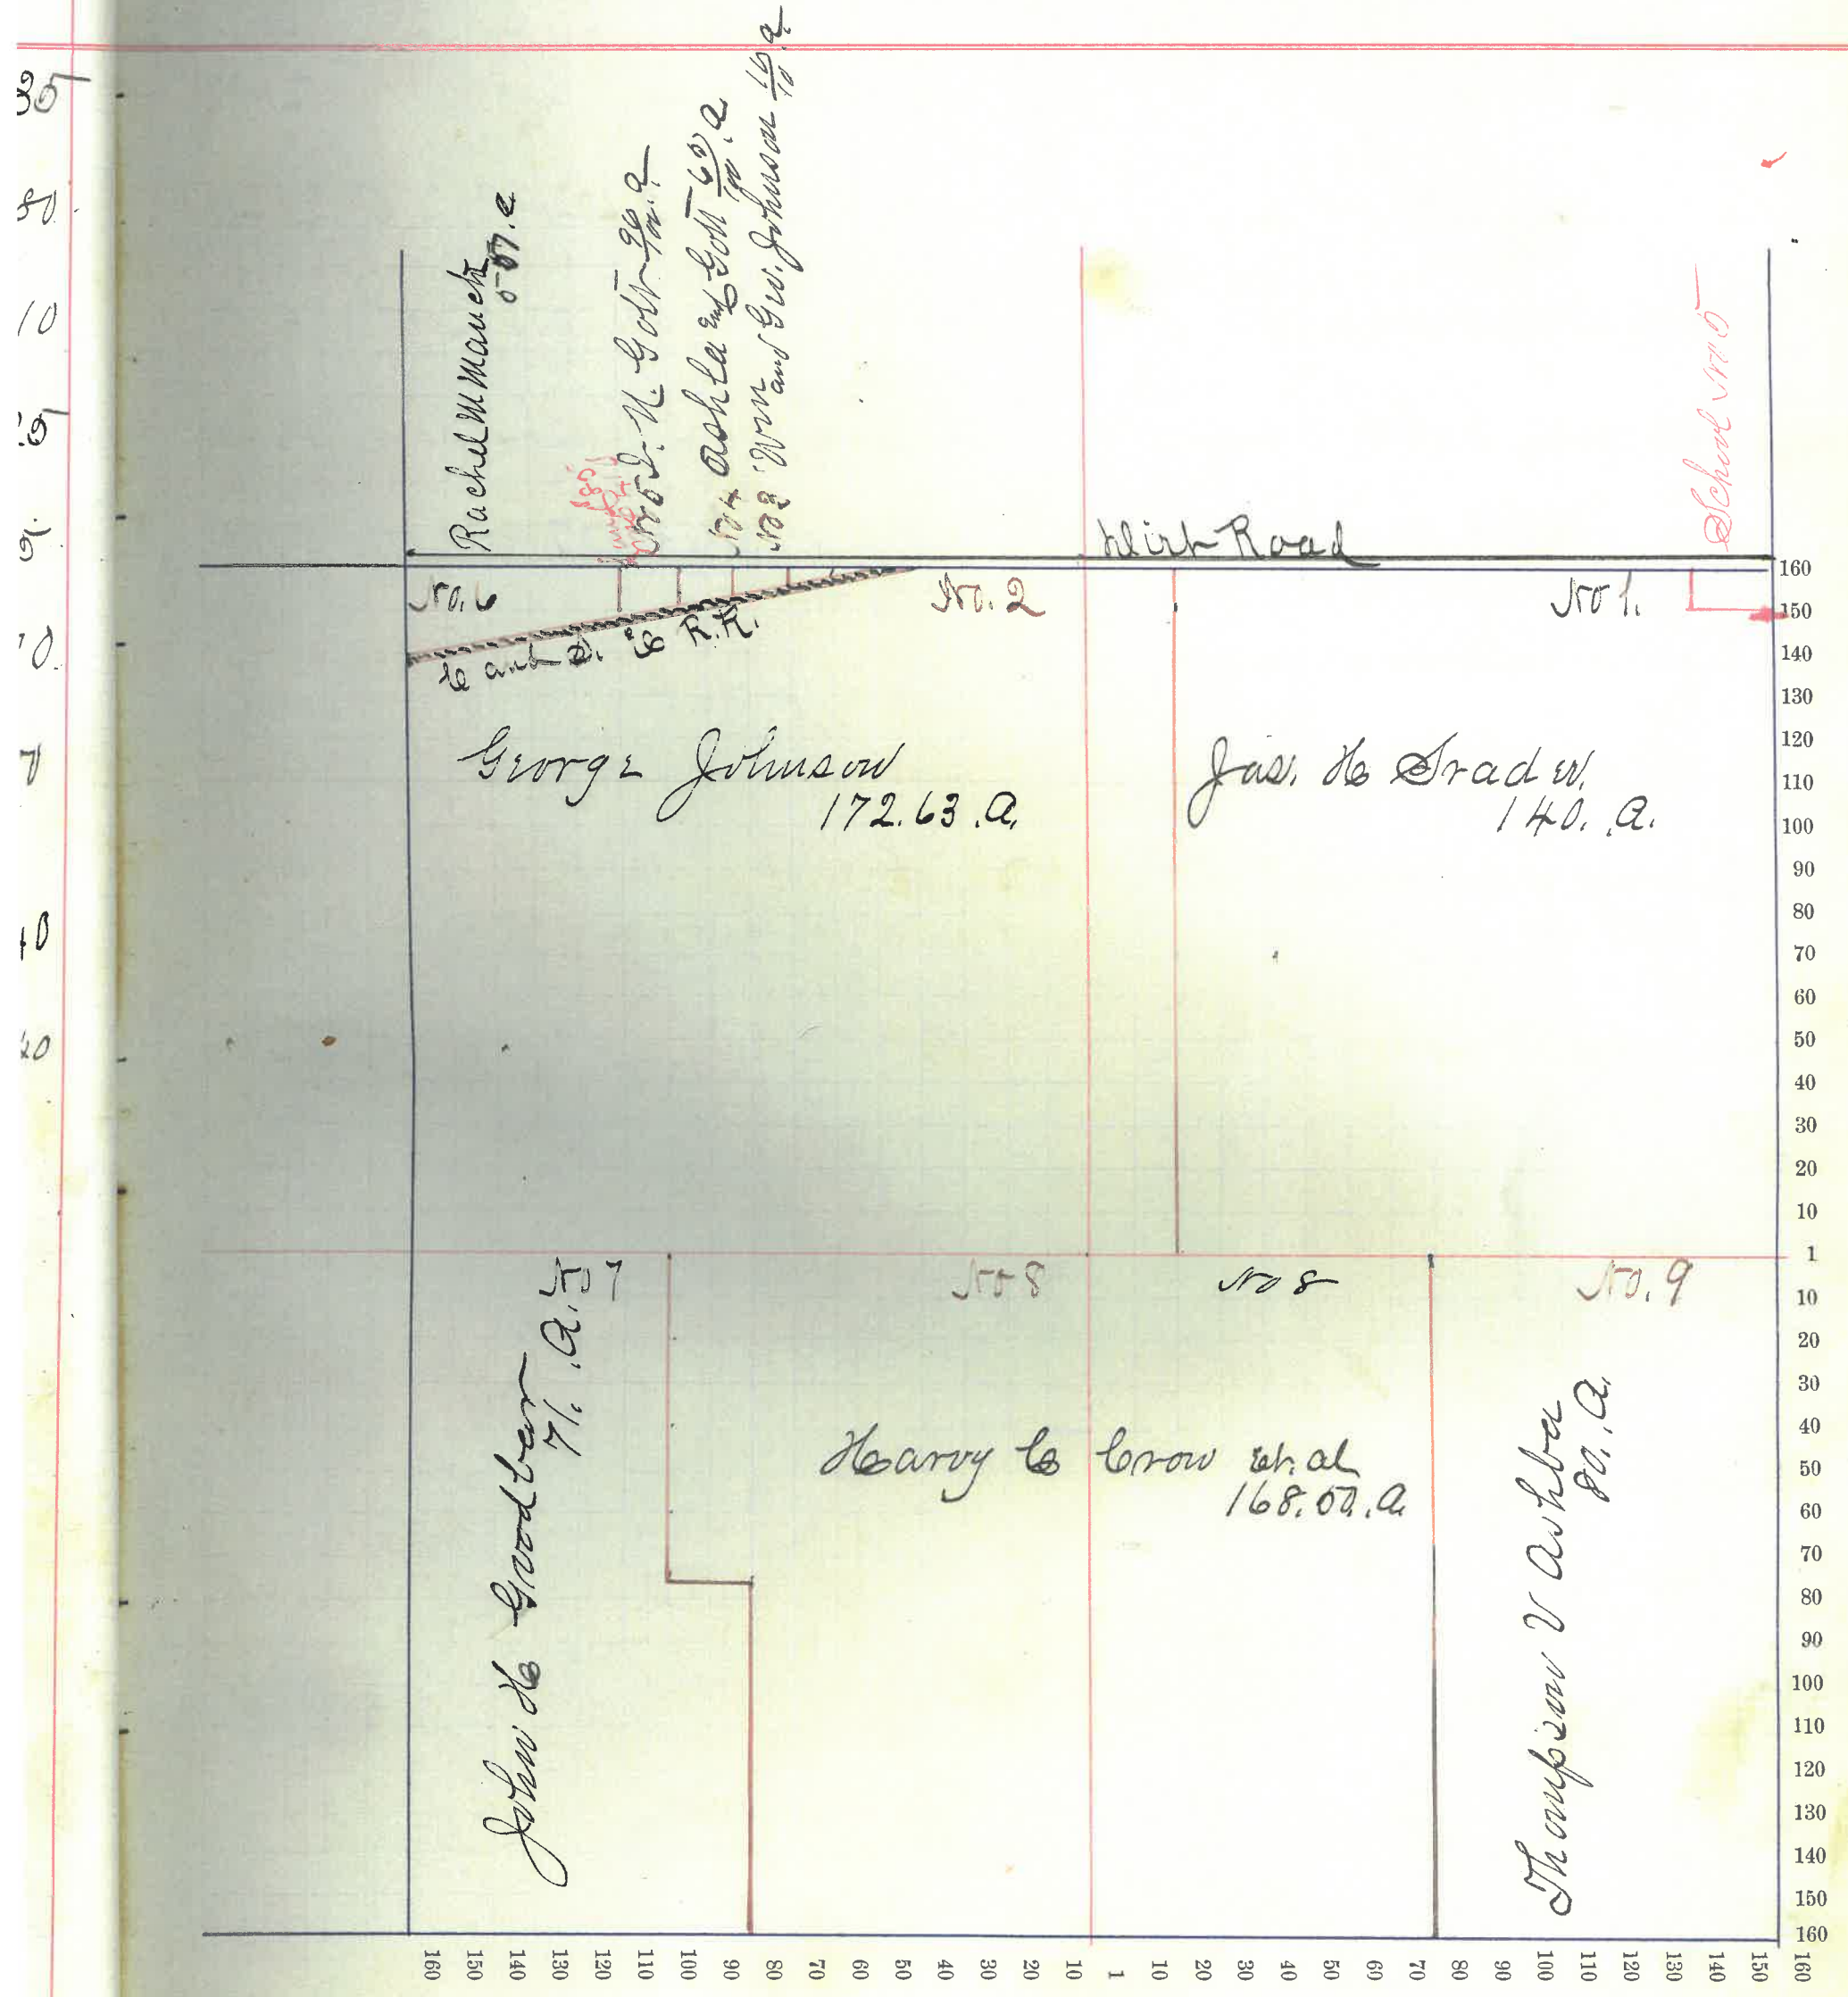 30
80.
10
10.
40
Rachel M Mauck
5.07.a
No 5 D. N. Gott 96/100.a
No 4 Ashba and Gott 65/100.a
No 3 Wm and Geo. Johnson
School No 5
Dirt Road
No. 6
No. 2
No 1.
R.R.
George Johnson
172.63.A.
Jas. H Srader.
140..A.
No 7
No 8
No 8
No. 9
John H Goodbar
71..A.
Harvy C Crow et. al
168.50.A
Thompson V Ashba
80..A.
160
150
140
130
120
110
100
90
80
70
60
50
40
30
20
10
1
10
20
30
40
50
60
70
80
90
100
110
120
130
140
150
160
160 150 140 130 120 110 100 90 80 70 60 50 40 30 20 10 1 10 20 30 40 50 60 70 80 90 100 110 120 130 140 150 160